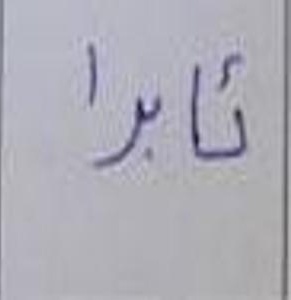 ئابرا